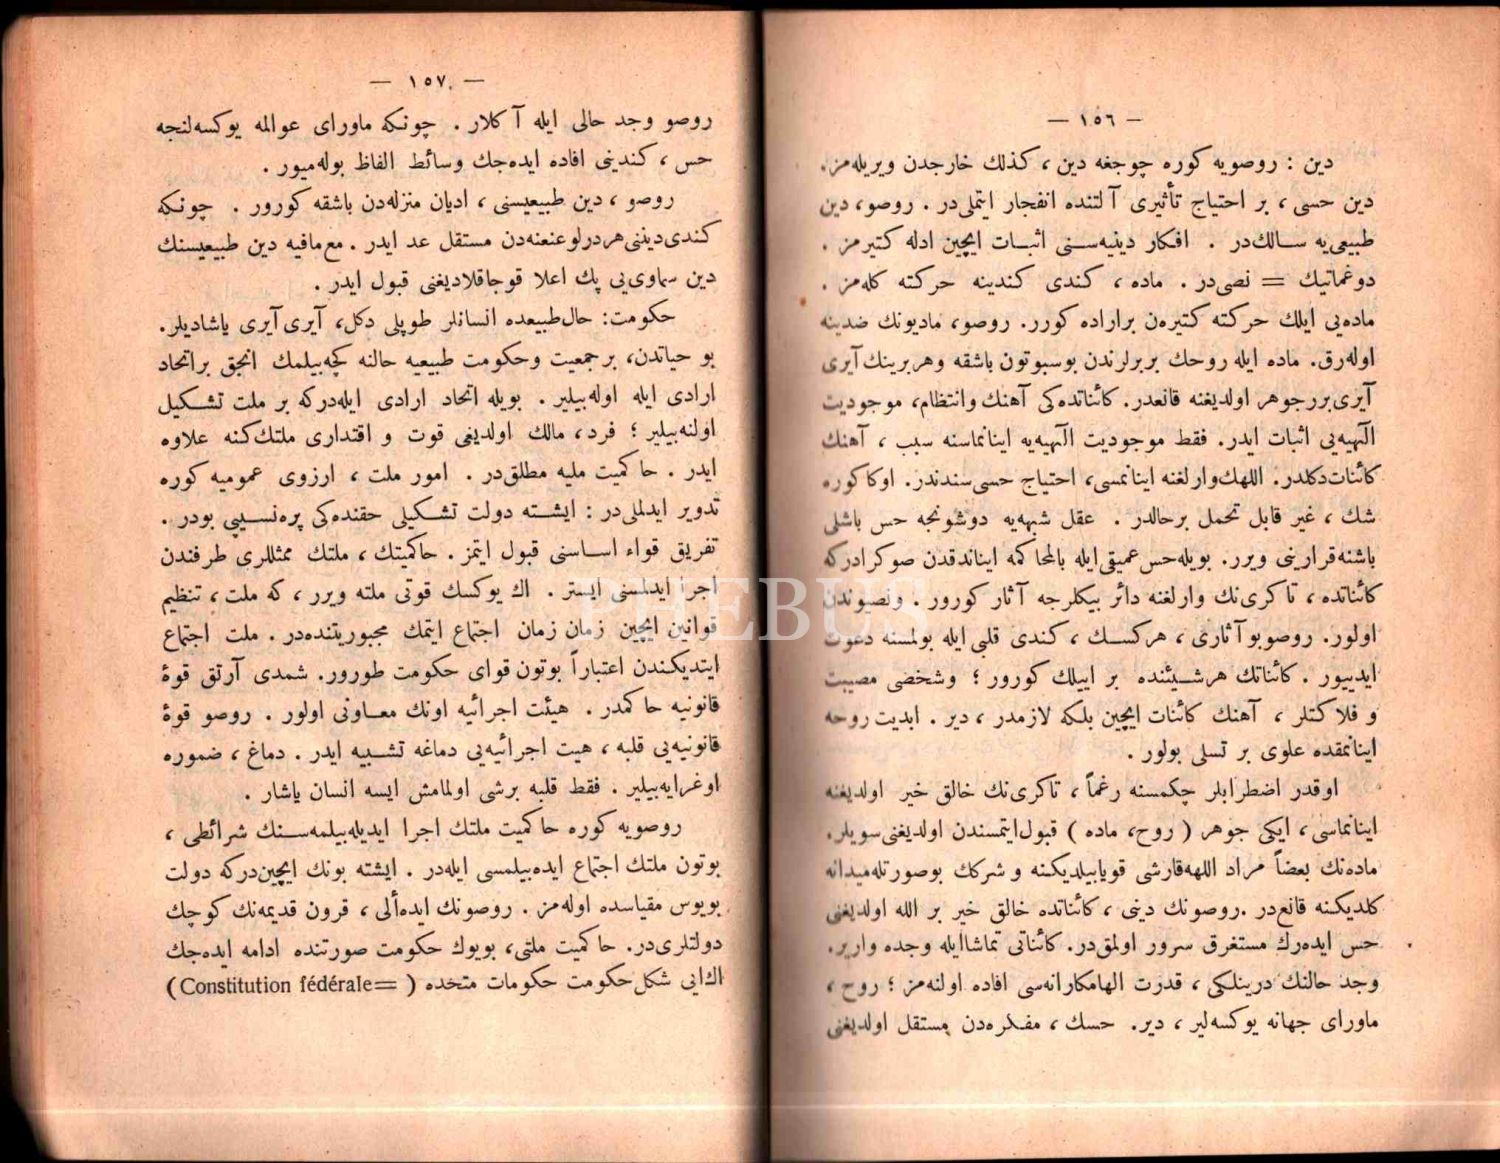 — ١٥٦ —
دین : روصویه کوره چوجغه دین ، کذلك خارجدن ویریله‌مز.
دین حسی ، بر احتیاج تأثیری آلتنده انفجار ایتملی‌در . روصو، دین
طبیعی‌یه سالك‌در . افکار دینیه‌سنی اثبات ایچین ادله کتیرمز .
دوغماتیك = نصی‌در . ماده ، کندی کندینه حرکته کله‌مز .
ماده‌یی ایلك حرکته کتیره‌ن براراده کورر. روصو، مادیونك ضدینه
اوله‌رق. ماده ایله روحك بربرلرندن بوسبوتون باشقه وهربرینك آیری
آیری‌بررجوهر اولدیغنه قانعدر. کائناتده‌کی آهنك وانتظام، موجودیت
الٓهیه‌یی اثبات ایدر. فقط موجودیت الٓهیه‌یه اینانماسنه سبب ، آهنك
کائنات‌دکلدر. اللهك‌وارلغنه اینانمسی، احتیاج حسی‌سندندر. اوکا‌کوره
شك ، غیر قابل تحمل برحالدر . عقل شبهه‌یه دوشونجه حس باشلی
باشنه‌قرارینی ویرر. بویله‌حس‌عمیقی‌ایله بالمحاکمه ایناندقدن صوکرادرکه
کائناتده ، تاکری‌نك وارلغنه دائر بیکلرجه آثار کورور .
اولور. روصوبو‌آثاری ، هرکسك ، کندی قلبی ایله بولمسنه دعوت
ایدییور . کائناتك هرشیئنده بر اییلك کورور ؛ وشخصی مصیبت
و فلاکتلر ، آهنك کائنات ایچین بلکه لازمدر ، دیر . ابدیت روحه
اینانمقده علوی بر تسلی بولور .
اوقدر اضطرابلر چکمسنه رغماً ، تاکری‌نك خالق خیر اولدیغنه
اینانماسی ، ایکی جوهر ( روح، ماده ) قبول‌ایتمسندن اولدیغنی‌سویلر.
ماده‌نك بعضاً مراد اللهه‌قارشی قویابیلدیکنه و شرك‌ك بوصورتله‌میدانه
کلدیکنه قانع‌در .روصونك دینی ، کائناتده خالق خیر بر الله اولدیغنی
حس ایده‌رك مستغرق سرور اولمق‌در. کائناتی تماشا‌ایله وجده واریر.
وجد حالنك درینلکی ، قدرت الهامکارانه‌سی افاده اولنه‌مز ؛ روح ،
ماورای جهانه یوکسه‌لیر ، دیر. حسك ، مفکره‌دن مستقل اولدیغنی
— ١٥٧ —
روصو وجد حالی ایله آکلار . چونکه ماورای عوالمه یوکسه‌لنجه
حس ، کندینی افاده ایده‌جك وسائط الفاظ بوله‌میور .
روصو ، دین طبیعیسنی ، ادیان منزله‌دن باشقه کورور . چونکه
کندی‌دیننی‌هردرلوعنعنه‌دن مستقل عد ایدر . مع‌مافیه دین طبیعیسنك
دین سماوی‌یی پك اعلا قوجاقلادیغنی قبول ایدر .
حکومت: حال‌طبیعده انسانلر طوپلی دکل، آیری‌آیری یاشادیلر.
بو حیاتدن، برجمعیت وحکومت طبیعیه حالنه کچه‌بیلمك انجق براتحاد
ارادی ایله اوله‌بیلیر . بویله اتحاد ارادی ایله‌درکه بر ملت تشکیل
اولنه‌بیلیر ؛ فرد، مالك اولدیغی قوت و اقتداری ملتك‌کنه علاوه
ایدر . حاکمیت ملیه مطلق‌در . امور ملت ، ارزوی عمومیه کوره
تدویر ایدلملی‌در : ایشته دولت تشکیلی حقنده‌کی پره‌نسیپی بودر .
تفریق قواء اساسنی قبول ایتمز . حاکمیتك ، ملتك ممثللری طرفندن
اجرا ایدلمسنی ایستر . اك یوکسك قوتی ملته ویرر ، که ملت ، تنظیم
قوانین ایچین زمان زمان اجتماع ایتمك مجبوریتنده‌در . ملت اجتماع
ایتدیکندن اعتباراً بوتون قوای حکومت طورور. شمدی آرتق قوۀ
قانونیه حاکمدر . هیئت اجرائیه اونك معاونی اولور . روصو قوۀ
قانونیه‌یی قلبه ، هیت اجرائیه‌یی دماغه تشبیه ایدر . دماغ ، ضموره
اوغرایه‌بیلیر . فقط قلبه برشی اولمامش ایسه انسان یاشار .
روصویه کوره حاکمیت ملتك اجرا ایدیله‌بیلمه‌سنك شرائطی ،
بوتون ملتك اجتماع ایده‌بیلمسی ایله‌در . ایشته بونك ایچین‌درکه دولت
بویوس مقیاسده اوله‌مز . روصونك ایده‌ألی ، قرون قدیمه‌نك کوچك
دولتلری‌در. حاکمیت ملتی، بویوك حکومت صورتنده ادامه ایده‌جك
اك‌ایی شکل‌حکومت حکومات متحده ( =Constitution fédérale)
PHEBUS